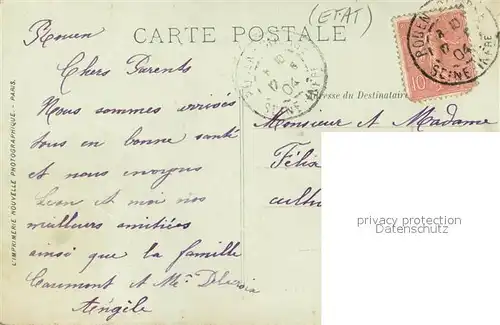 (ETAT)
CARTE POSTALE
Rouen
Chers Parents
Nous sommes arrivés
tous en bonne santé
et nous envoyons
Leon et moi nos
meilleurs amitiées
ainsi que la famille
Caumont et Me
Angèle
Adresse du Destinataire
Monsieur et Madame
Félix
cultiv
L'IMPRIMERIE NOUVELLE PHOTOGRAPHIQUE - PARIS.
ROUEN
04
SEINE INFRE
10
privacy protection
Datenschutz